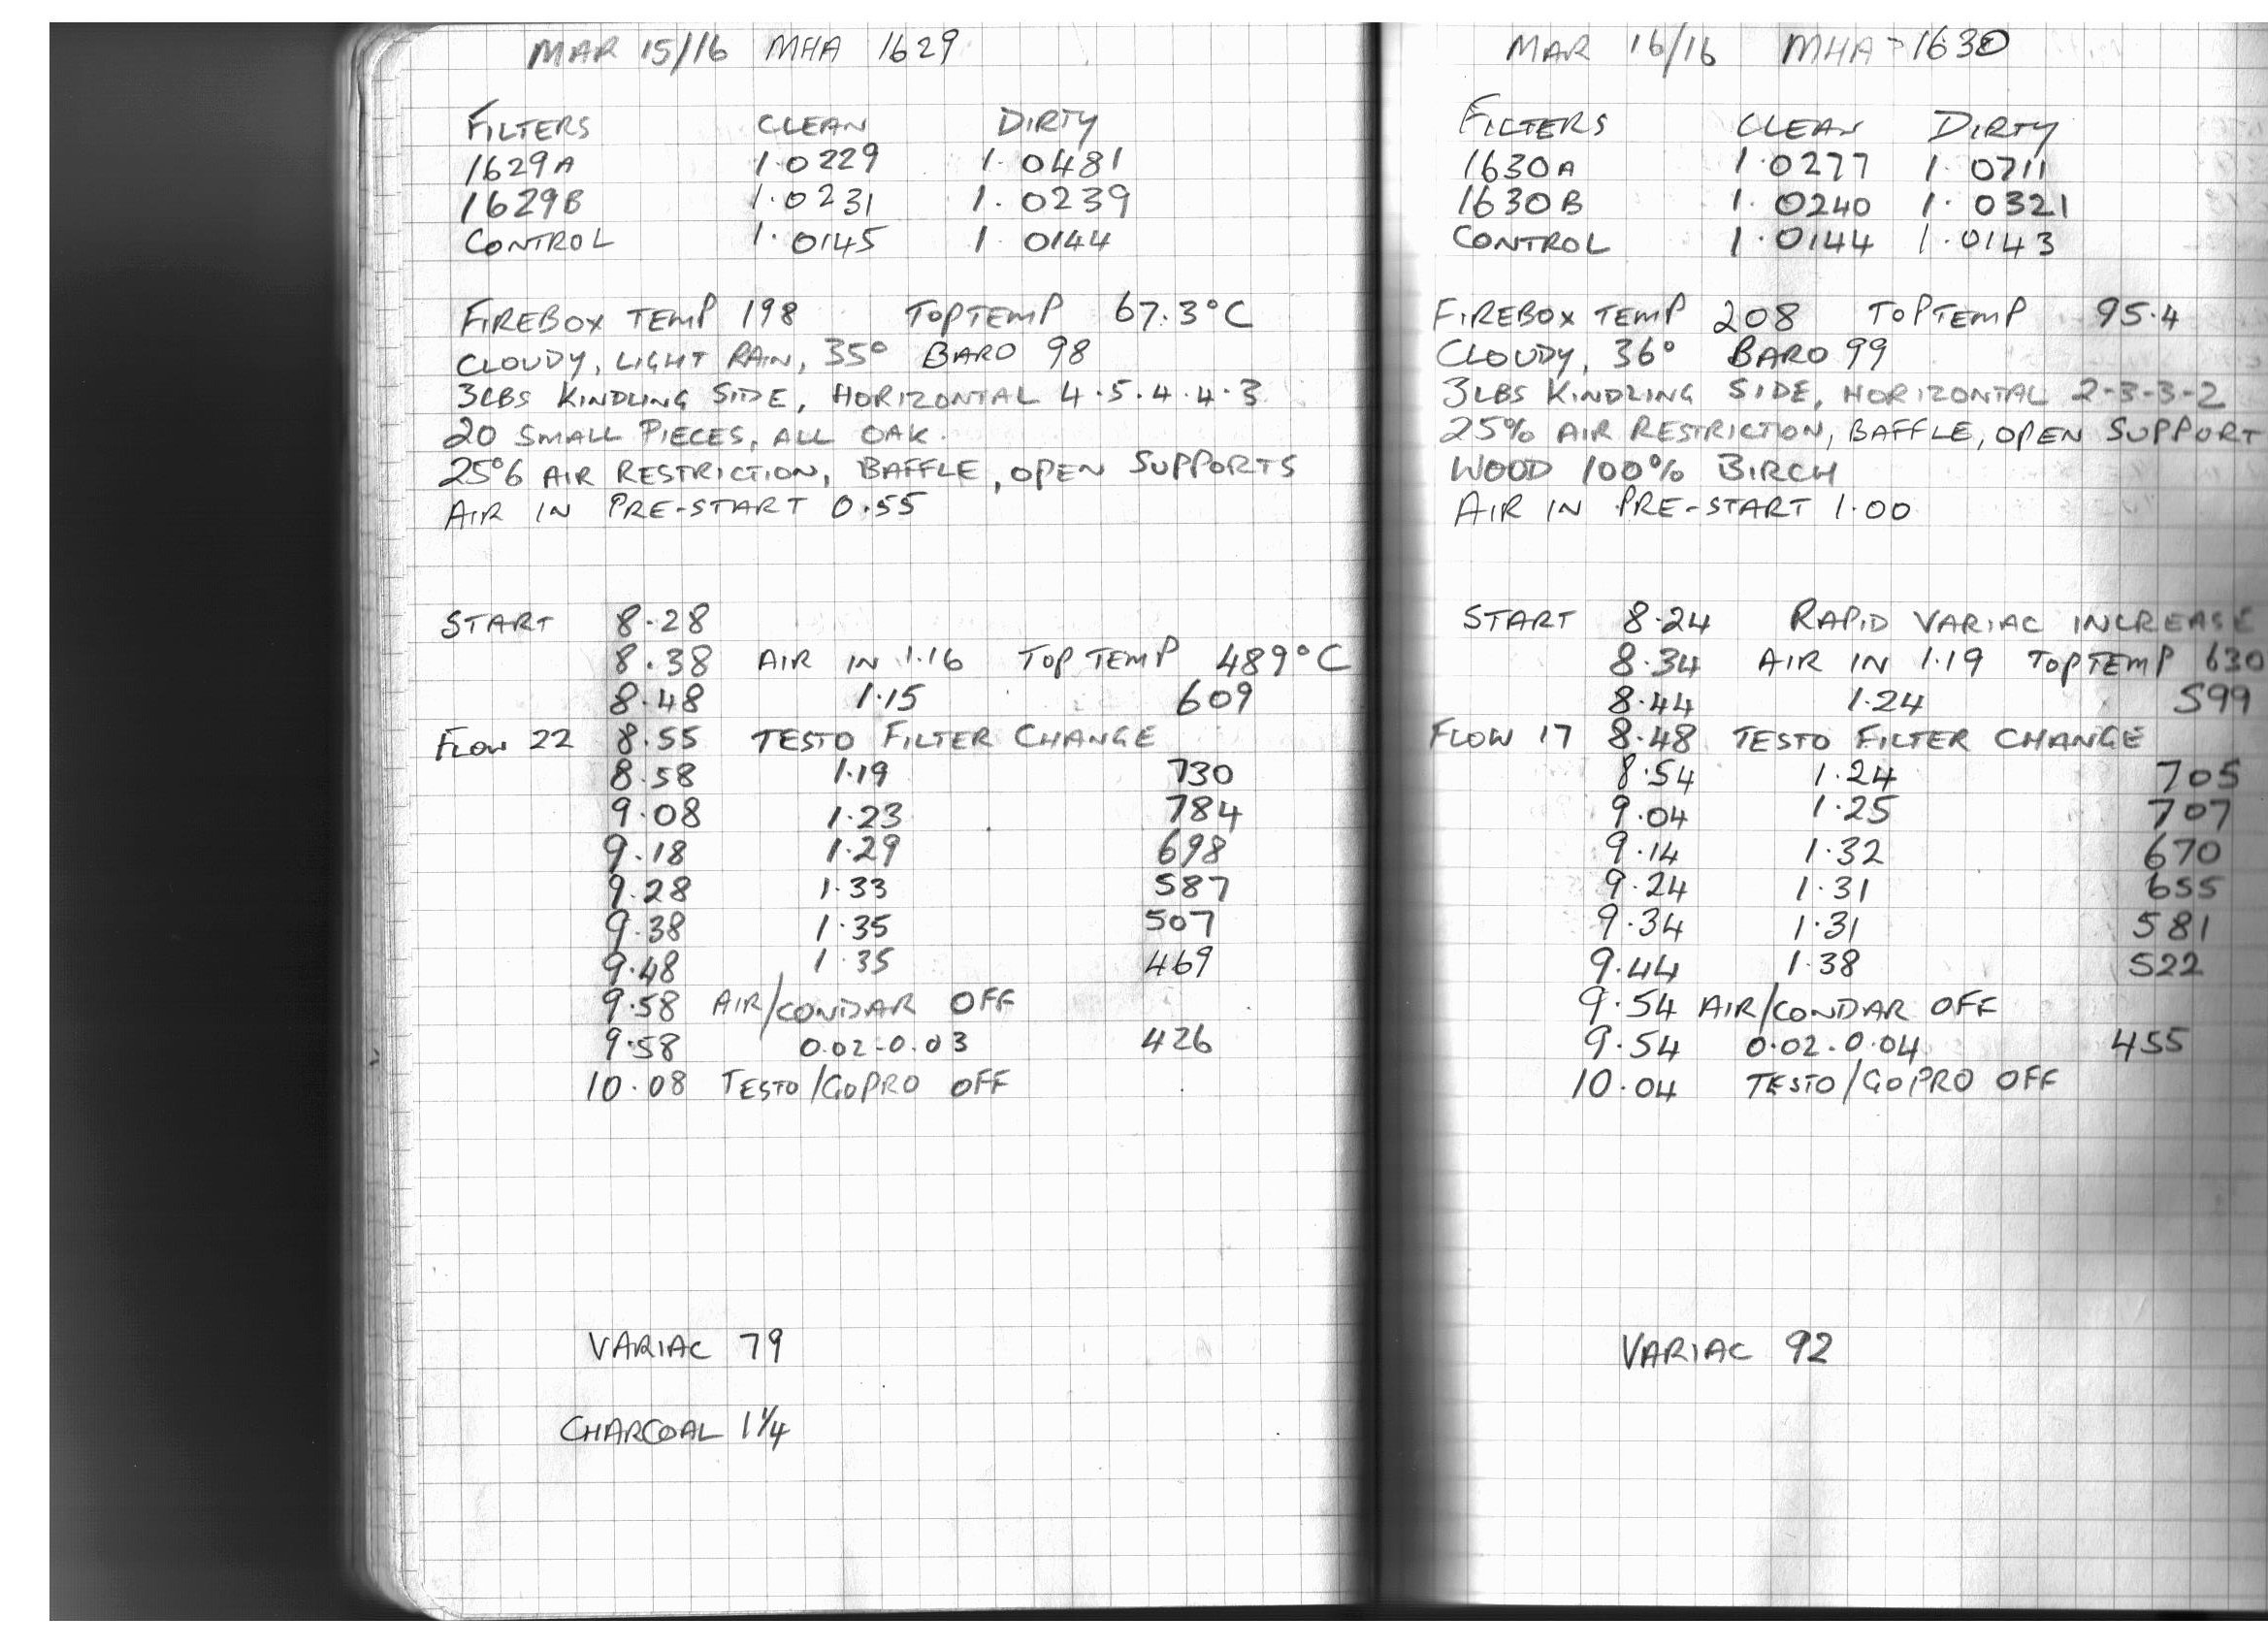 MAR 15/16 MHA 1629
FILTERS CLEAN DIRTY
1629A 1.0229 1.0481
1629B 1.0231 1.0239
CONTROL 1.0145 1.0144
FIREBOX TEMP 198 TOPTEMP 67.3°C
CLOUDY, LIGHT RAIN, 35° BARO 98
3LBS KINDLING SIDE, HORIZONTAL 4.5.4.4.3
20 SMALL PIECES, ALL OAK.
25% AIR RESTRICTION, BAFFLE, OPEN SUPPORTS
AIR IN PRE-START 0.55
START 8.28
8.38 AIR IN 1.16 TOP TEMP 489°C
8.48 1.15 609
FLOW 22 8.55 TESTO FILTER CHANGE
8.58 1.19 730
9.08 1.23 784
9.18 1.29 698
9.28 1.33 587
9.38 1.35 507
9.48 1.35 469
9.58 AIR/CONDAR OFF
9.58 0.02-0.03 426
10.08 TESTO/GOPRO OFF
VARIAC 79
CHARCOAL 1¼
MAR 16/16 MHA-1630
FILTERS CLEAN DIRTY
1630A 1.0277 1.0711
1630B 1.0240 1.0321
CONTROL 1.0144 1.0143
FIREBOX TEMP 208 TOPTEMP 95.4
CLOUDY, 36° BARO 99
3LBS KINDLING SIDE, HORIZONTAL 2-3-3-2
25% AIR RESTRICTION, BAFFLE, OPEN SUPPORT
WOOD 100% BIRCH
AIR IN PRE-START 1.00
START 8.24 RAPID VARIAC INCREASE
8.34 AIR IN 1.19 TOPTEMP 630
8.44 1.24 599
FLOW 17 8.48 TESTO FILTER CHANGE
8.54 1.24 705
9.04 1.25 707
9.14 1.32 670
9.24 1.31 655
9.34 1.31 581
9.44 1.38 522
9.54 AIR/CONDAR OFF
9.54 0.02-0.04 455
10.04 TESTO/GOPRO OFF
VARIAC 92